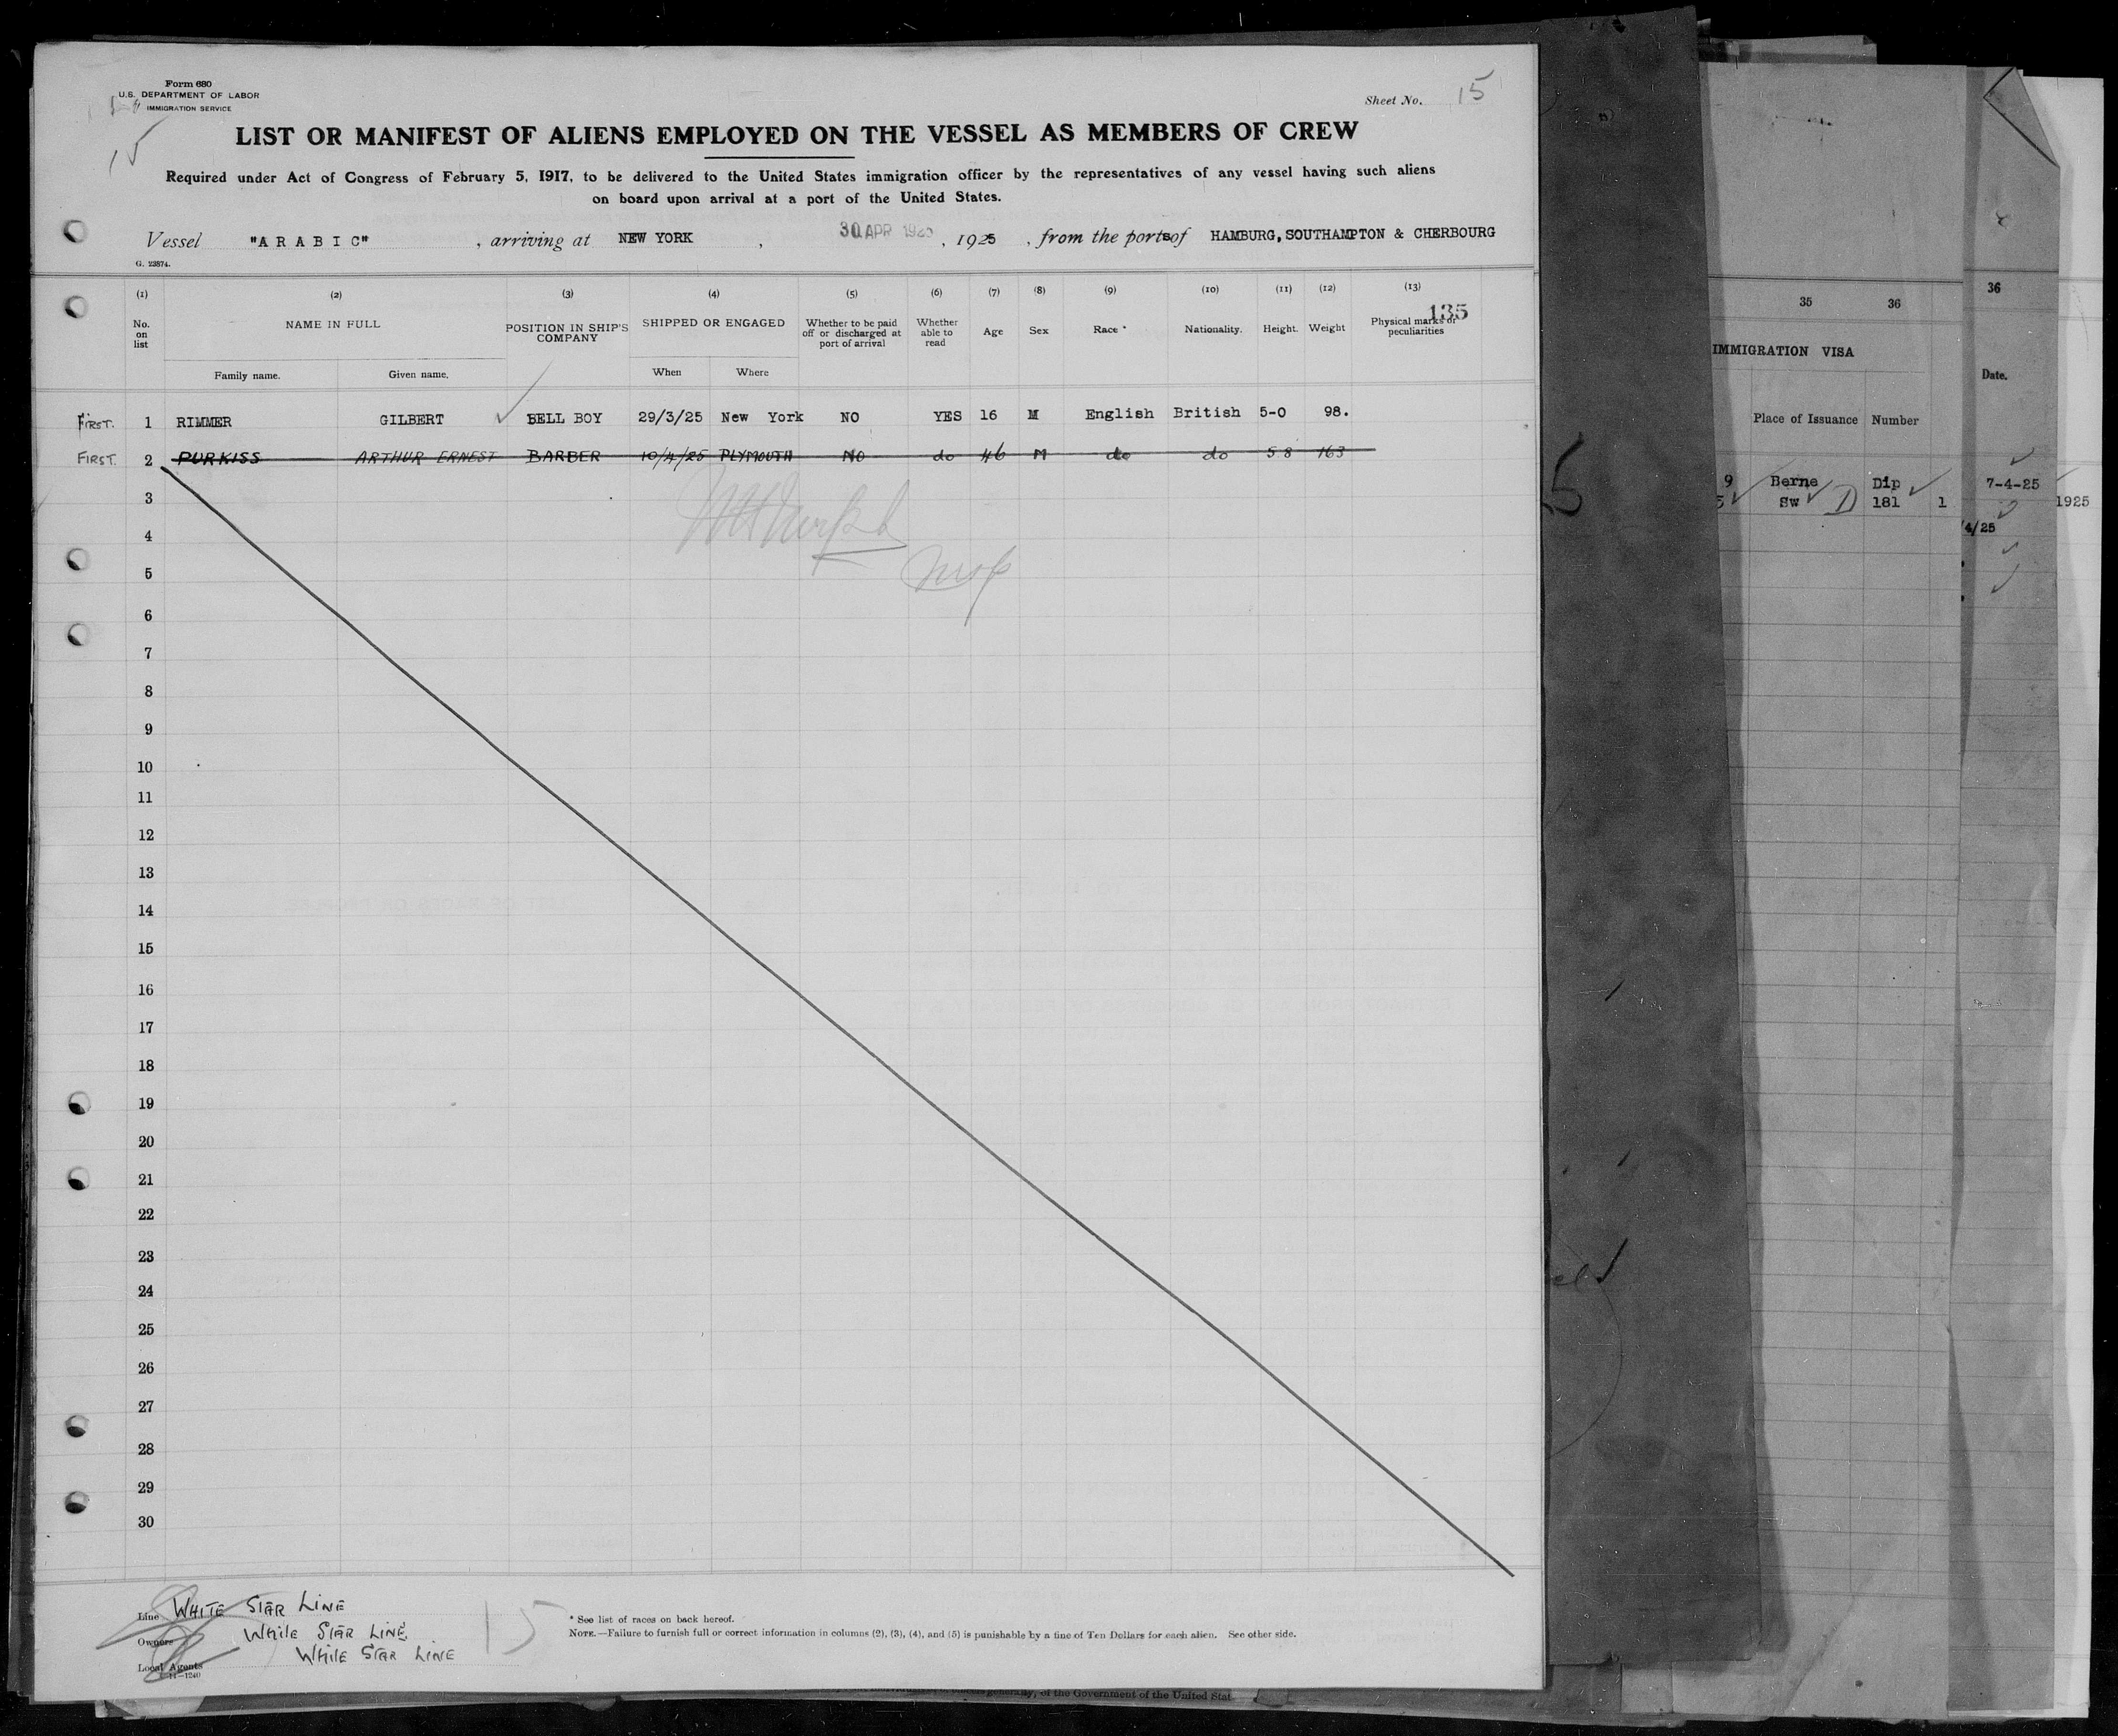 Form 680
U.S. DEPARTMENT OF LABOR
IMMIGRATION SERVICE
15
Sheet No. 15
LIST OR MANIFEST OF ALIENS EMPLOYED ON THE VESSEL AS MEMBERS OF CREW
Required under Act of Congress of February 5, 1917, to be delivered to the United States immigration officer by the representatives of any vessel having such aliens
on board upon arrival at a port of the United States.
Vessel "ARABIC", arriving at NEW YORK, 30 APR 1925, 1925, from the ports of HAMBURG, SOUTHAMPTON & CHERBOURG
G. 23874.
(1) (2) (3) (4) (5) (6) (7) (8) (9) (10) (11) (12) (13)
135
No. on list NAME IN FULL POSITION IN SHIP'S COMPANY SHIPPED OR ENGAGED Whether to be paid off or discharged at port of arrival Whether able to read Age Sex Race * Nationality. Height. Weight Physical marks or peculiarities
Family name. Given name. When Where
FIRST. 1 RIMMER GILBERT BELL BOY 29/3/25 New York NO YES 16 M English British 5-0 98.
FIRST. 2 PURKISS ARTHUR ERNEST BARBER 10/4/25 PLYMOUTH NO do 46 M do do 5 8 163
3
4
5
6
7
8
9
10
11
12
13
14
15
16
17
18
19
20
21
22
23
24
25
26
27
28
29
30
Line WHITE STAR LINE
Owners WHITE STAR LINE
Local Agents WHITE STAR LINE
14—1240
15
* See list of races on back hereof.
NOTE.—Failure to furnish full or correct information in columns (2), (3), (4), and (5) is punishable by a fine of Ten Dollars for each alien. See other side.
generally, of the Government of the United Stat
35 36
IMMIGRATION VISA
Place of Issuance Number
9 Berne Dip
Sw D 181 1
36
Date.
7-4-25
1925
4/25